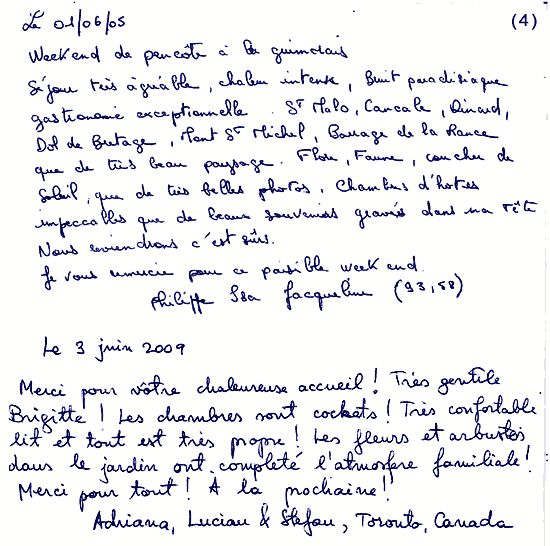 Le 01/06/05
(4)
Week end de pencôte à la guimorais
Séjour très agréable, chaleur intense, Bruit paradisiaque
gastronomie exceptionnelle. St Malo, Cancale, Dinard,
Dol de Bretage, Mont St Michel, Barrage de la Rance
que de très beau paysage. Flore, Faune, coucher de
Soleil, que de très belles photos. Chambres d'hotes
impeccables que de beaux souvenirs gravés dans ma tête
Nous reviendrons c'est sûrs.
Je vous remercie pour ce paisible week end.
philippe Isa Jacqueline (93,58)
Le 3 juin 2009
Merci pour vôtre chaleureuse accueil! Très gentile
Brigitte! Les chambres sont cockets! Très confortable
lit et tout est très propre! Les fleurs et arbustes
dans le jardin ont completé l'atmosfere familiale!
Merci pour tout! A la prochaine!
Adriana, Lucian & Stefan, Toronto, Canada